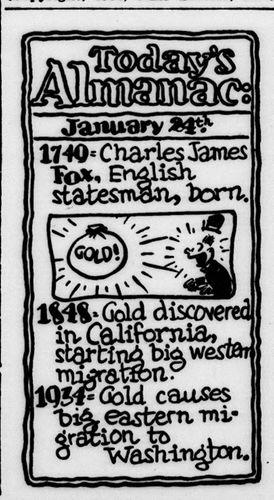 Today's
Almanac:
January 24th
1749= Charles James
Fox, English
statesman, born.
GOLD!
1848= Gold discovered
in California,
starting big western
migration.
1934= Gold causes
big eastern mi-
gration to
Washington.